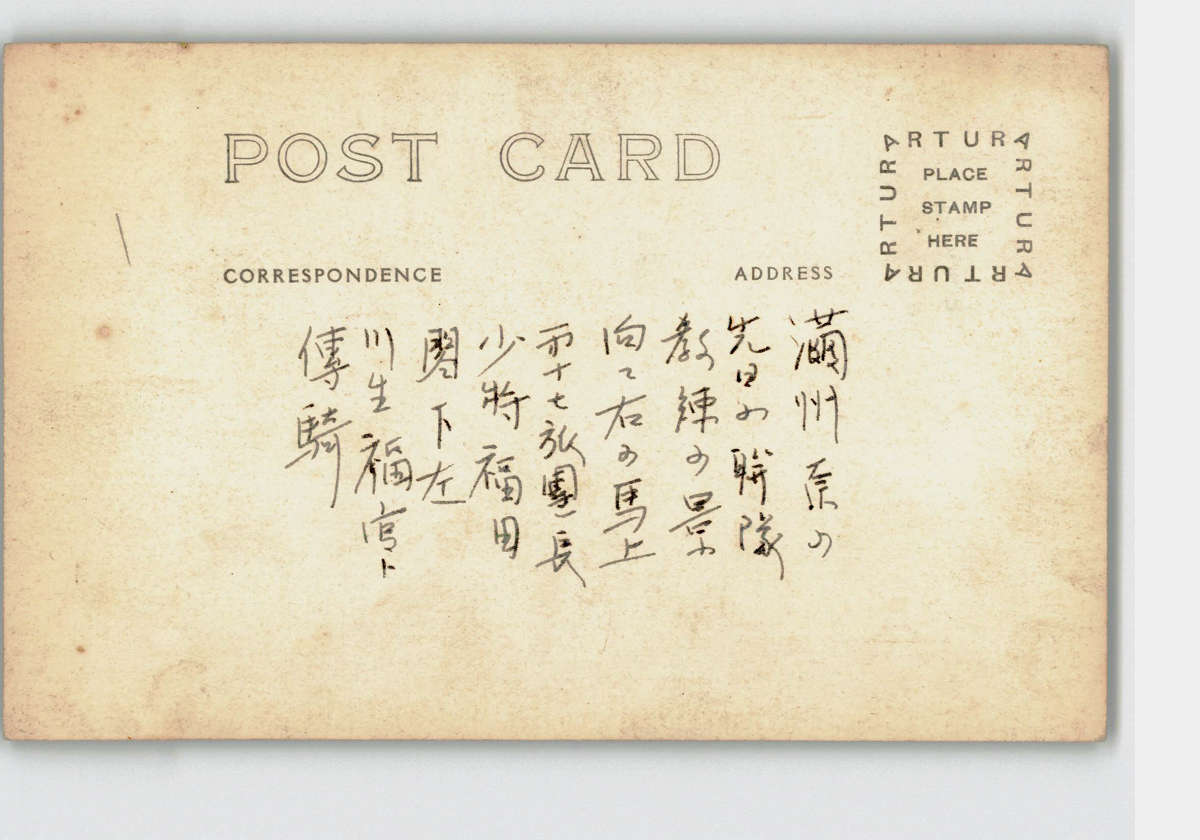 POST CARD
ARTURA
ARTURA
ARTURA
ARTURA
PLACE
STAMP
HERE
CORRESPONDENCE
ADDRESS
滿州
先日の聯隊
教練の景
向て右の馬上
十七旅團長
少將福田
閣下左
川生福官ト
傳騎